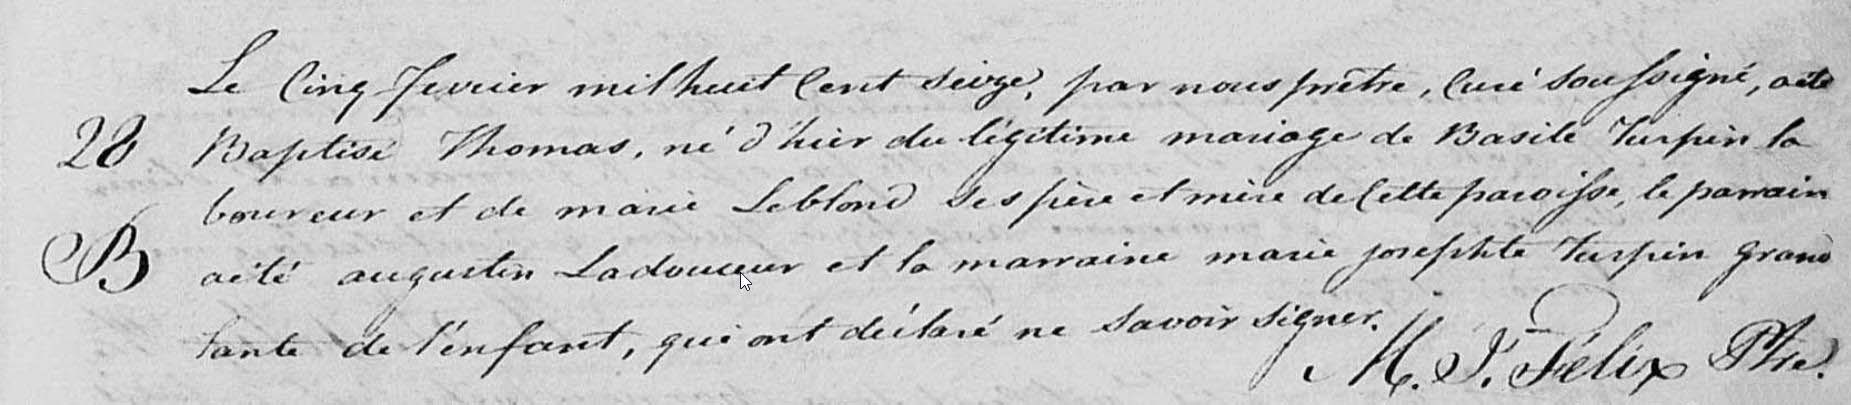 Le Cinq Fevrier mil huit Cent Seize, par nous prêtre, Curé Soussigné, aété
28 Baptisé Thomas, né d'hier du légitime mariage de Basile Turpin la
boureur et de marie Leblond Ses père et mère de Cette paroisse, le parrain
B aété augustin Ladouceur et la marraine marie josephte Turpin grand
tante de l'enfant, qui ont déclaré ne Savoir Signer.
M. J. Félix Ptre.